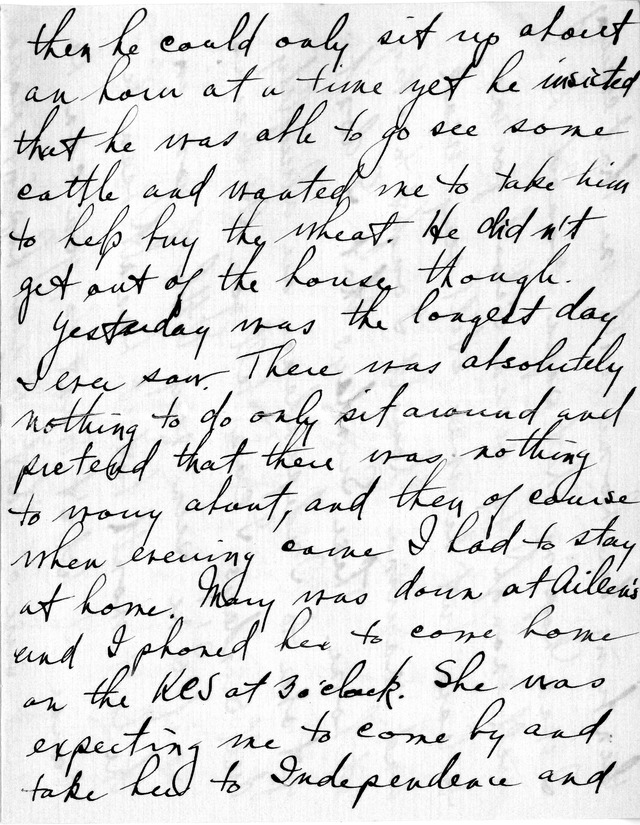 then he could only sit up about
an hour at a time yet he insisted
that he was able to go see some
cattle and wanted me to take him
to help buy the wheat. He didn't
get out of the house though.
Yesterday was the longest day
I ever saw. There was absolutely
nothing to do only sit around and
pretend that there was nothing
to worry about, and then of course
when evening came I had to stay
at home. Mary was down at Aileen's
and I phoned her to come home
on the KCS at 3 o'clock. She was
expecting me to come by and
take her to Independence and